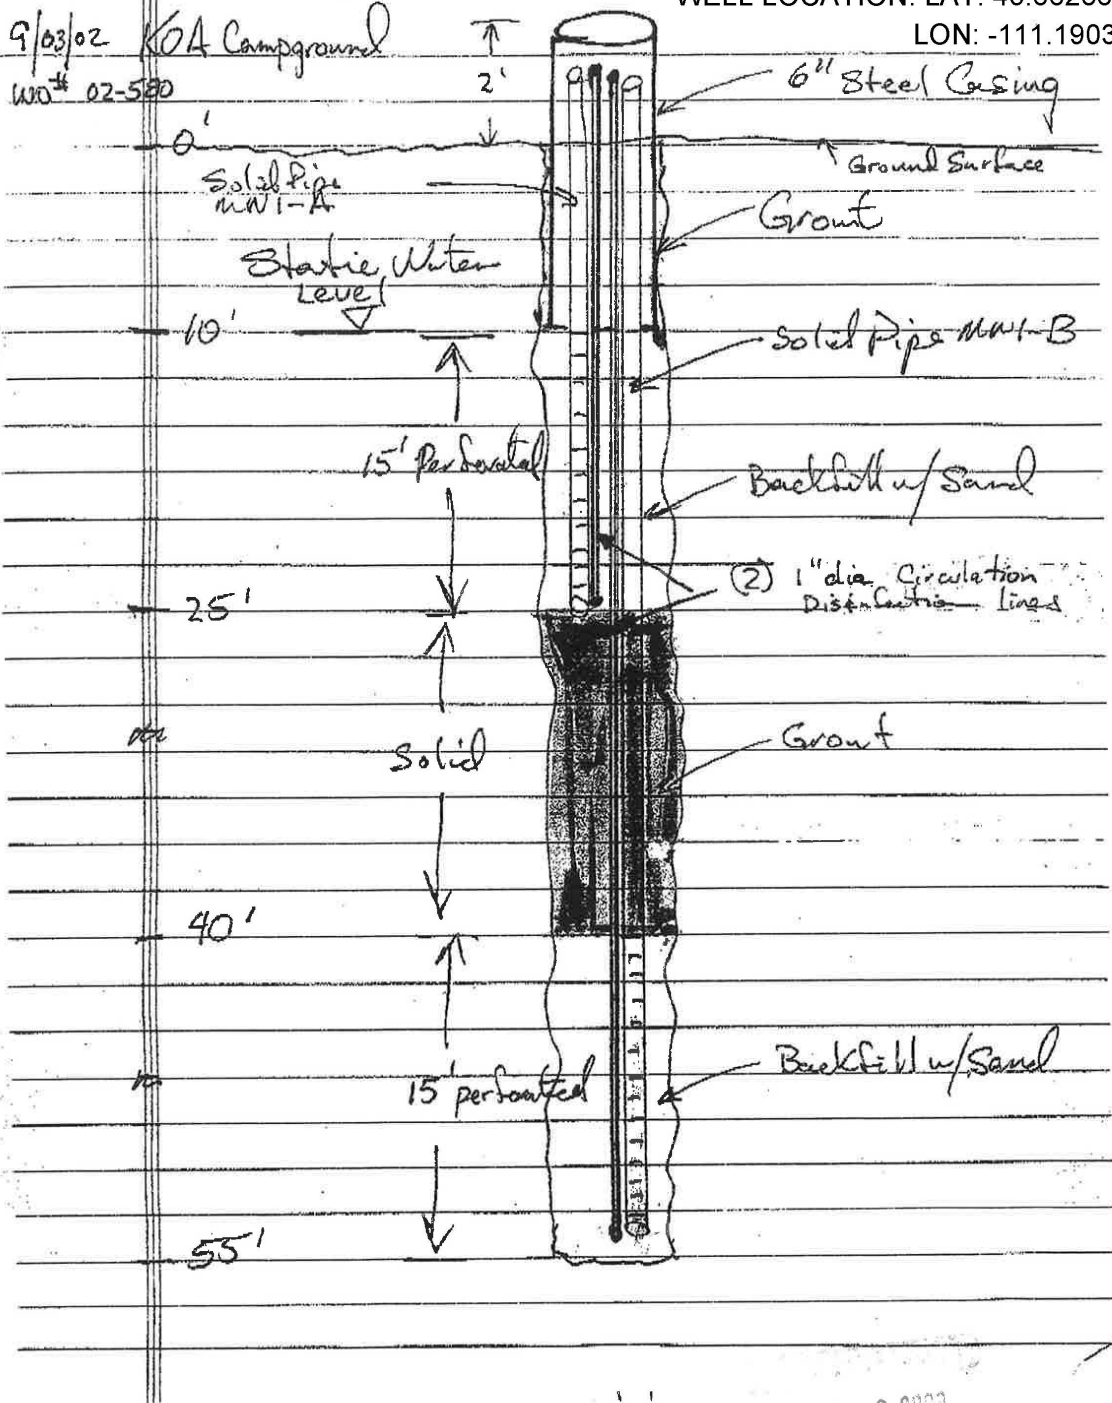 LON: -111.1903
9/03/02 KOA Campground
WO# 02-580
2'
6" Steel Casing
0'
Ground Surface
Solid Pipe
MW1-A
Grout
Static Water
Level
10'
Solid Pipe MW1-B
15' Perforated
Backfill w/ Sand
(2) 1" dia Circulation
Disinfection lines
25'
Solid
Grout
40'
15' perforated
Backfill w/ Sand
55'